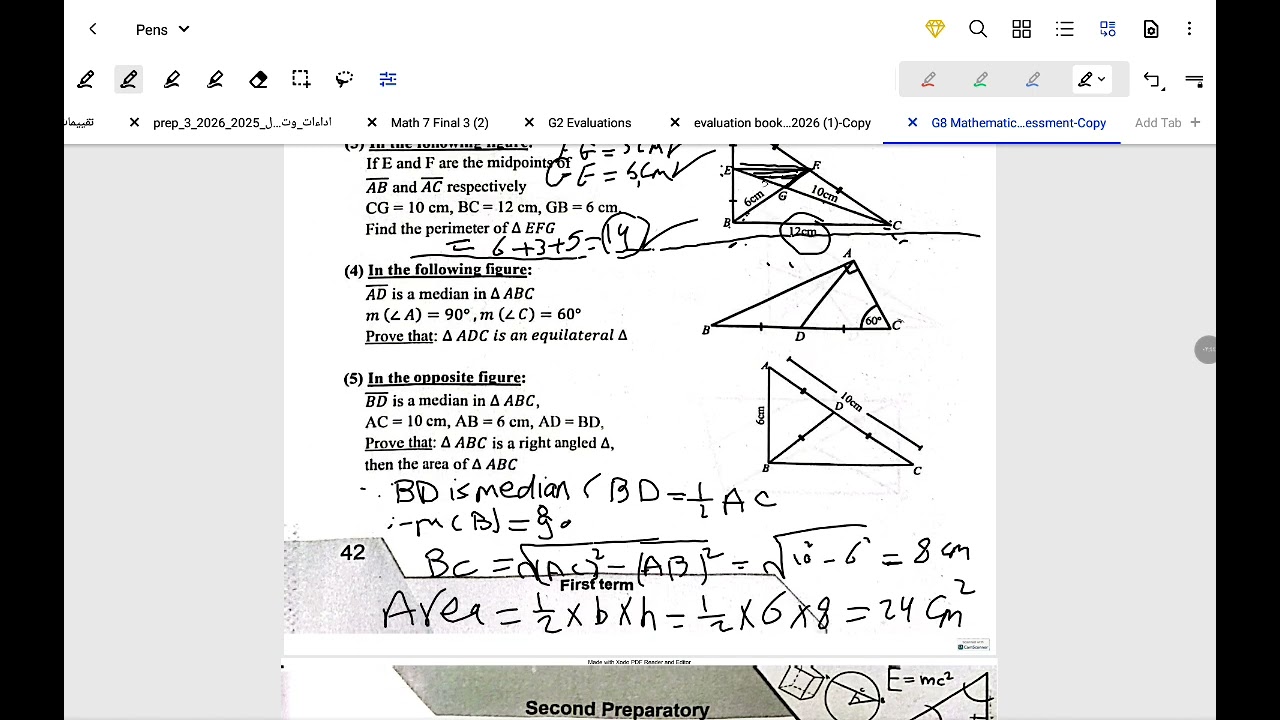 Pens
تقييمات
prep_3_2026_2025_اداءات_وت...ل
Math 7 Final 3 (2)
G2 Evaluations
evaluation book...2026 (1)-Copy
G8 Mathematic...essment-Copy
Add Tab +
(3) In the following figure:
If E and F are the midpoints of
AB and AC respectively
CG = 10 cm, BC = 12 cm, GB = 6 cm
Find the perimeter of Δ EFG
GE = 5cm
= 6 + 3 + 5 = 14
E
F
G
B
C
6cm
10cm
12cm
(4) In the following figure:
AD is a median in Δ ABC
m (∠ A) = 90°, m (∠ C) = 60°
Prove that: Δ ADC is an equilateral Δ
A
B
D
C
60°
(5) In the opposite figure:
BD is a median in Δ ABC,
AC = 10 cm, AB = 6 cm, AD = BD,
Prove that: Δ ABC is a right angled Δ,
then the area of Δ ABC
A
B
C
D
6cm
10cm
∵ BD is median, BD = 1/2 AC
∴ m(B) = 90
BC = √(AC)² - (AB)² = √10² - 6² = 8 cm
42
First term
Area = 1/2 × b × h = 1/2 × 6 × 8 = 24 cm²
CamScanner
Made with Xodo PDF Reader and Editor
E = mc²
Second Preparatory